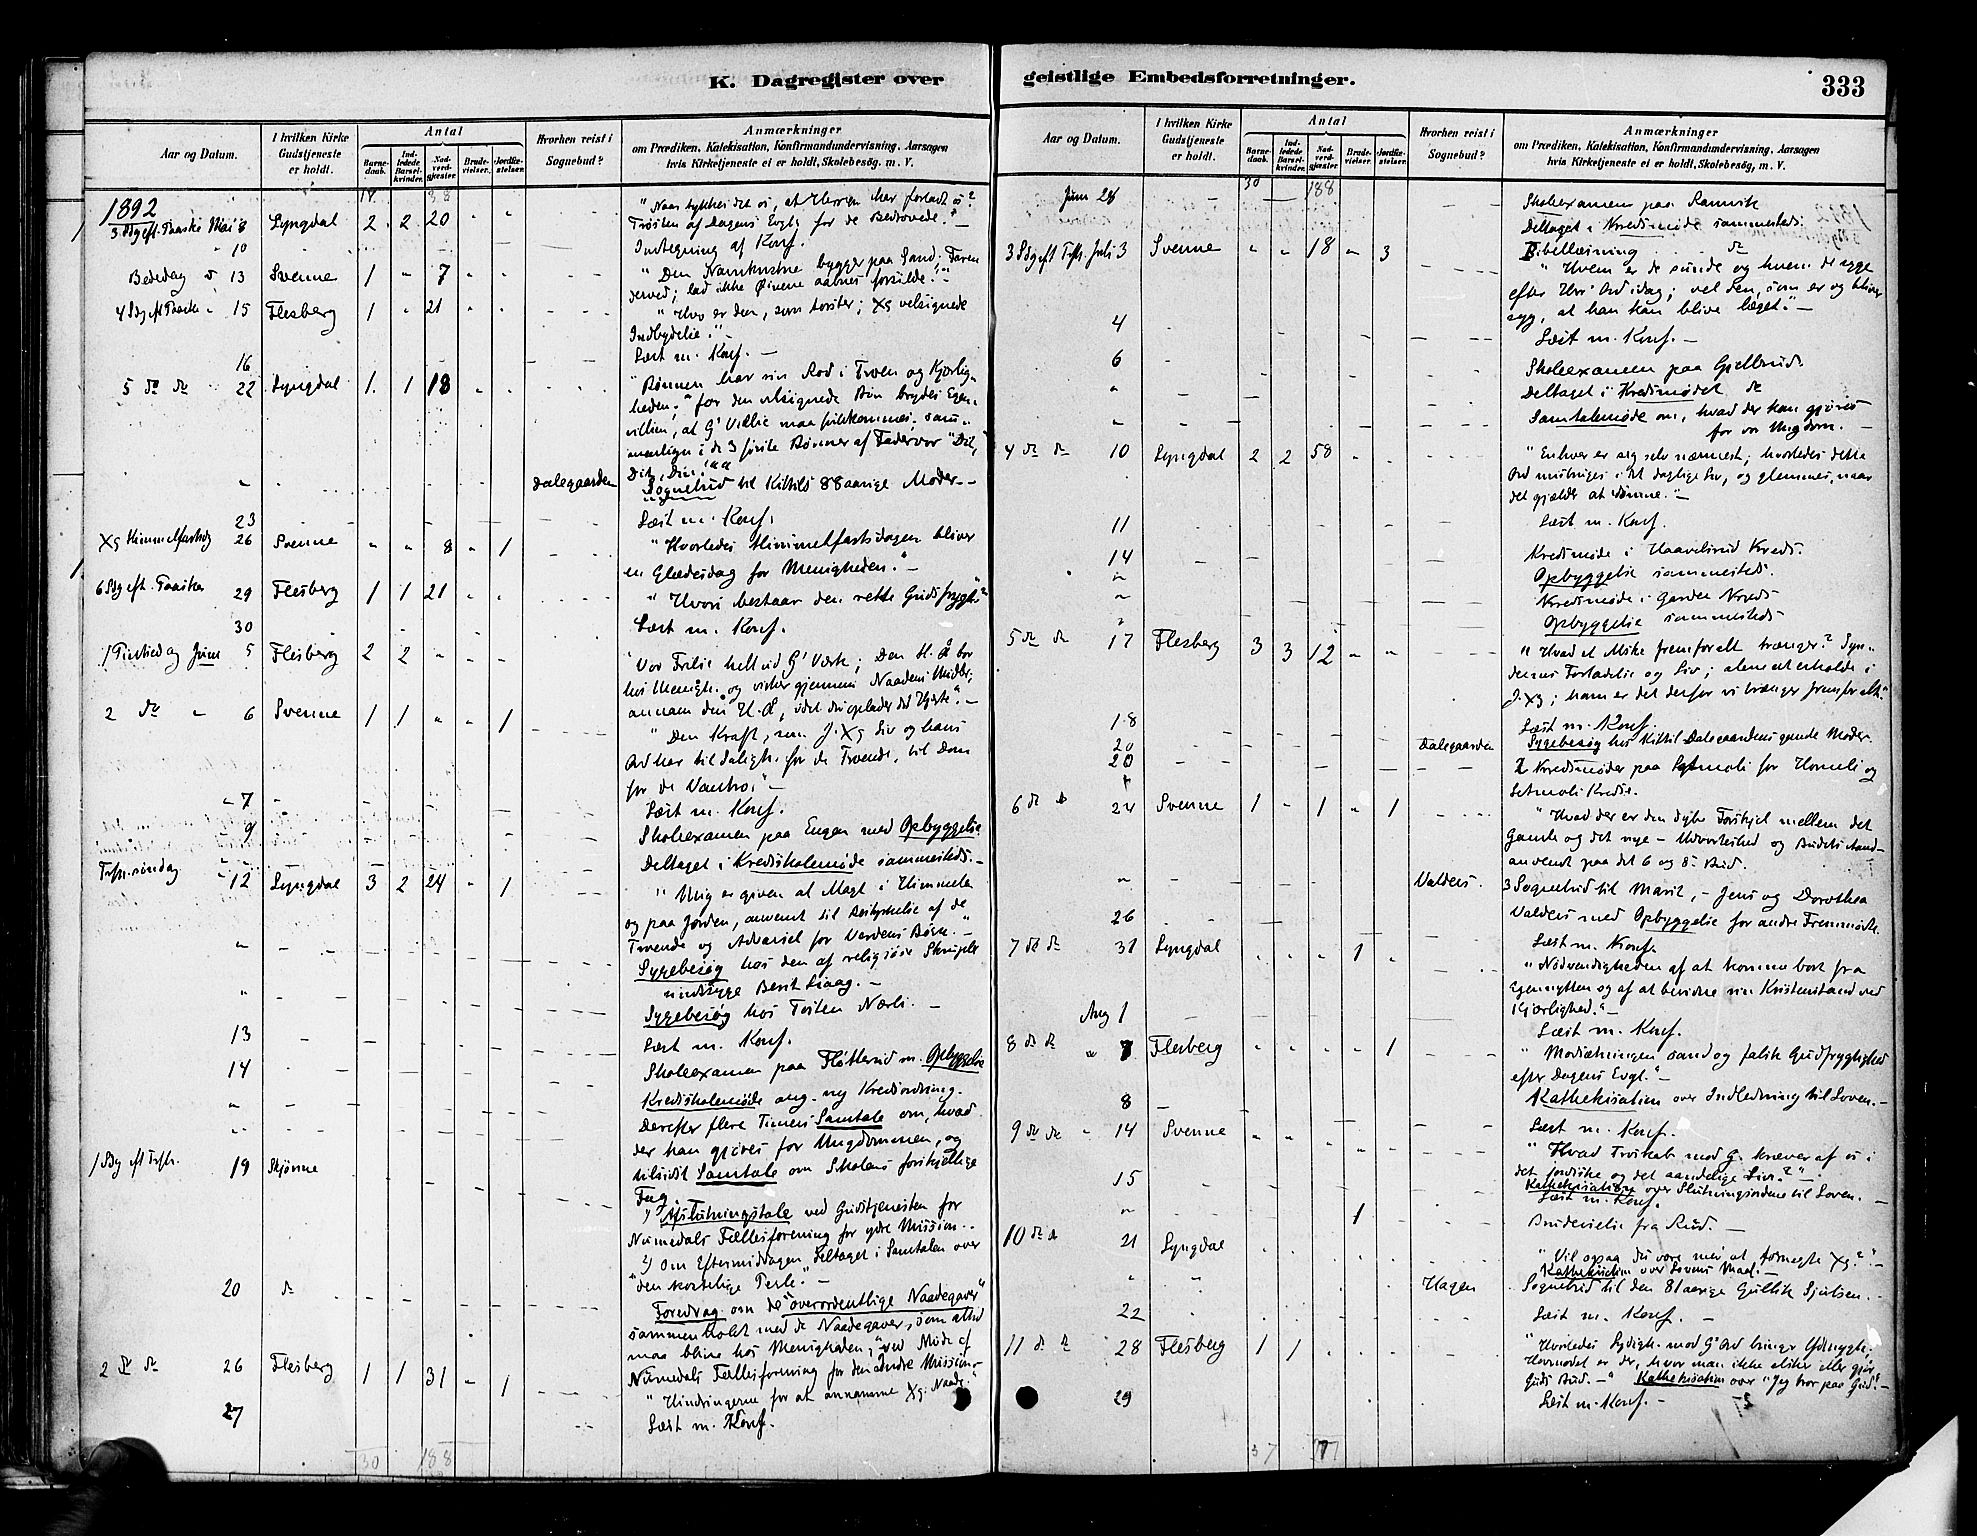 K. Dagregister over
geistlige Embedsforretninger.
333
Aar og Datum.
I hvilken Kirke Gudstjeneste er holdt.
Antal
Barnedaab.
Indledede Barselkvinder.
Nadverdgjæster.
Brudevielser.
Jordfæstelser.
Hvorhen reist i Sognebud?
Anmærkninger
om Prædiken, Katekisation, Konfirmandundervisning, Aarsagen
hvis Kirketjeneste ei er holdt, Skolebesøg, m. V.
1892
3 Sdg eft. Paaske Mai 8 Lyngdal 2 2 20 "Naar tykkes det os, at Herren har forladt os?
Trøsten af Dagens Evglg for de Bedrøvede." –
10 Indtegning af Konf.
Bededag 13 Svenne 1 " 7 bygger paa Sand; Faren
derved; lad ikke Øinene aabnes forsilde!"
4 Sdg eft Paaske " 15 Flesberg 1 " 21 "Hvo er den, som tørster; Xg velsignede
Indbydelse." –
16 Læst m. Konf. –
5 do do 22 Lyngdal 1. 1 18 "Bønnen har sin Rod i Troen og Kjærlig-
heden;" for den velsignede Bøn brydes Egen-
villien, at G' Villie maa fuldkommes;
i de 3 første Bønner af Fadervor "Dit,
Dit, Din."
" Dalegaarden Sognebud til Kittils 88 aarige Moder –
23 Læst m. Konf.
Xg Himmelfartsdg 26 Svenne " " 8 " 1 "Hvorledes Himmelfartsdagen bliver
en Glædesdag for Menigheden." –
6 Sdg eft. Paaske 29 Flesberg 1 1 21 "Hvori bestaar den rette Gudsfrygt?"
30 Læst m. Konf.
1 Pintsedag Juni 5 Flesberg 2 2 " "Vor Frelse helt ud G' Værk; Den H. A bor
hos Menigh. og virker gjennem Naadens Midler;
annam den H. A,
2 do " 6 Svenne 1 1 " " 1 "Den Kraft, som J. Xg Liv og hans
Ord har til daligh. for de Troende, til Dom
for de Vantro." –
" 7 Læst m. Konf.
9 Skoleexamen paa Engen med Opbyggelse.
" Deltaget i Kredsskolemøde sammesteds. –
Trft. søndag " 12 Lyngdal 3 2 24 " 1 "Mig er given al Magt i Himmelen
og paa Jorden, anvent til Bestyrkelse af de
Troende og Advarsel for Verdens Børn." –
" Sygebesøg hos den af religiøse Skrupler
sindssyge Berit Liaag. –
" Sygebesøg hos Torsten Nærli. –
13 Læst m. Konf.
14 Skoleexamen paa Fløtterud m. Opbyggelse
" Kredsskolemøde ang. ny Kredsordning.
" Derefter flere Timers Samtale om, hvad
der kan gjøres for Ungdommen, og
tilsidst Samtale om Skolens forskjellige
Fag.
1 Sdg eft Trft. 19 Skjønne 1) Afslutningstale ved Gudstjenesten for
Numedals Fællesforening for ydre Mission..
2) Om Eftermiddagen deltaget i Samtalen over
"den kostelige Perle." –
20 do Foredrag om de "overordentlige Naadegaver"
sammenholdt med de Naadegaver, som altid
maa blive hos Menigheden;" ved Møde af
Numedals Fællesforening for den indre Mission –
2 do do 26 Flesberg 1 1 31 " 1 "Hindringerne for at annamme Xg. Naade."
27 Læst m. Konf.
30 188
30 188
Juni 28 Skoleexamen paa Ramvik
Deltaget i Kredsmøde sammesteds.
Bibellæsning do
3 Sdg eft Trft. Juli 3 Svenne " " 18 " 3 "Hvem er de sunde og hvem de syge
efter Herr' Ord idag; vel den, som er og bliver
syg, at han kan blive læget." –
4 Læst m. Konf. –
6 Skoleexamen paa Gjellerud.
" Deltaget i Kredsmødet do
" Samtalemøde om, hvad der kan gjøres
for vor Ungdom. –
4 do do 10 Lyngdal 2 2 58 "Enhver er sig selv nærmest; hvorledes dette
Ord misbruges i det daglige Liv, og glemmes, naar
det gjælder at dømme." –
11 Læst m. Konf.
14 Kredsmøde i Haavelsrud Kreds.
" Opbyggelse sammesteds.
" Kredsmøde i Garden Kreds
" Opbyggelse sammesteds
5 do do 17 Flesberg 3 3 12 "Hvad et Mske fremforalt trænger? Syn-
dernes Forladelse og Liv; alene at erholde i
J. Xg; ham er det derfor vi trænger fremforalt."
18 Læst m. Konf.
20 Dalegaarden Sygebesøg hos Kittil Dalegaardens Moder.
20 2 Kredsmøder paa Setmoli for Homeli og
Setmoli Kreds.
6 do do 24 Svenne 1 " 1 " 1 "Hvad der er den dybe Forskjel mellem det
gamle og det nye – Udvorteshed og Budets Aand –
anvendt paa det 6 og 8 Bud.
" Valders. 3 Sognebud til Marit, – Jens og Dorothea
Valders med Opbyggelse for andre Fremmødte.
26 Læst m. Konf.
7 do do 31 Lyngdal 1 "Nødvendigheden af at komme bort fra
Egennytten og af at bevidne sin Kristenstand ved
Kjærlighed." –
Aug 1 Læst m. Konf.
8 do do " 7 Flesberg 1 "Modsætningen sand og falsk Gudfrygtighed
efter Dagens Evgl." –
Kathekisation over Indledning til Loven. –
8 Læst m. Konf.
9 do do " 14 Svenne "Hvad Troskab mod G. kræver af os i
det jordiske og det aandelige Liv?" –
Kathekisation over Slutningsordene til Loven. –
15 Læst m. Konf.
" 1 Brudevielse fra Rud. –
10 do do 21 Lyngdal "Vil ogsaa du være med at fornegte Xg?" –
Kathekisation over Lovens Maal. –
" Hagen Sognebud til den 81 aarige Gullik Sjulsen. –
22 Læst m. Konf. –
11 do do 28 Flesberg 1 1 "Hvorledes Lydigh. mod G' Ord bringer Ydmyghed;
Hovmodet er der, hvor man ikke elsker eller gjør
Guds Bud. –" Kathekisation over "Jeg tror paa Gud." –
29 Læst m. Konf. –
37